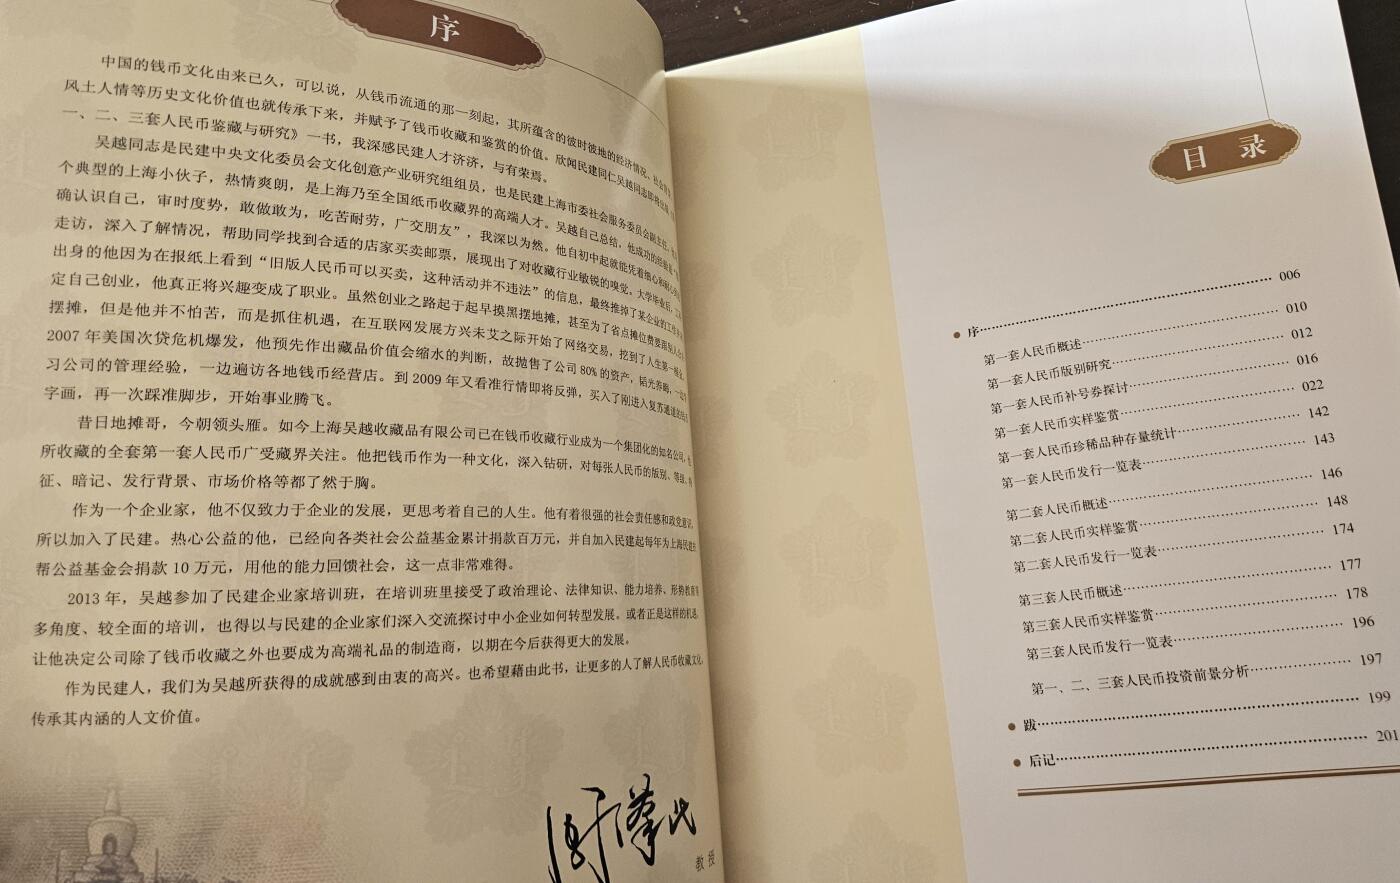 序
中国的钱币文化由来已久，可以说，从钱币流通的那一刻起，其所蕴含的彼时彼地的经济情况、社会
风土人情等历史文化价值也就传承下来，并赋予了钱币收藏和鉴赏的价值。欣闻民建同仁吴越同志即将出版
一、二、三套人民币鉴藏与研究》一书，我深感民建人才济济，与有荣焉。
吴越同志是民建中央文化委员会文化创意产业研究组组员，也是民建上海市委社会服务委员会副主任，
个典型的上海小伙子，热情爽朗，是上海乃至全国纸币收藏界的高端人才。吴越自己总结，他成功的经验是
确认识自己，审时度势，敢做敢为，吃苦耐劳，广交朋友”，我深以为然。他自初中起就能凭着细心和耐心
走访，深入了解情况，帮助同学找到合适的店家买卖邮票，展现出了对收藏行业敏锐的嗅觉。大学毕业后，
出身的他因为在报纸上看到“旧版人民币可以买卖，这种活动并不违法”的信息，最终推掉了某企业的工作
定自己创业，他真正将兴趣变成了职业。虽然创业之路起于起早摸黑摆地摊，甚至为了省点摊位费要跟别人
摆摊，但是他并不怕苦，而是抓住机遇，在互联网发展方兴未艾之际开始了网络交易，挖到了人生第一桶金。
2007 年美国次贷危机爆发，他预先作出藏品价值会缩水的判断，故抛售了公司 80% 的资产，韬光养晦，一边学
习公司的管理经验，一边遍访各地钱币经营店。到 2009 年又看准行情即将反弹，买入了刚进入复苏通道的
字画，再一次踩准脚步，开始事业腾飞。
昔日地摊哥，今朝领头雁。如今上海吴越收藏品有限公司已在钱币收藏行业成为一个集团化的知名公司，他
所收藏的全套第一套人民币广受藏界关注。他把钱币作为一种文化，深入钻研，对每张人民币的版别、等级、特
征、暗记、发行背景、市场价格等都了然于胸。
作为一个企业家，他不仅致力于企业的发展，更思考着自己的人生。他有着很强的社会责任感和政党意识，
所以加入了民建。热心公益的他，已经向各类社会公益基金累计捐款百万元，并自加入民建起每年为上海民建扶
帮公益基金会捐款 10 万元，用他的能力回馈社会，这一点非常难得。
2013 年，吴越参加了民建企业家培训班，在培训班里接受了政治理论、法律知识、能力培养、形势教育等
多角度、较全面的培训，也得以与民建的企业家们深入交流探讨中小企业如何转型发展。或者正是这样的机遇，
让他决定公司除了钱币收藏之外也要成为高端礼品的制造商，以期在今后获得更大的发展。
作为民建人，我们为吴越所获得的成就感到由衷的高兴。也希望藉由此书，让更多的人了解人民币收藏文化，
传承其内涵的人文价值。
教 授
目 录
序 006
第一套人民币概述 010
第一套人民币版别研究 012
第一套人民币补号券探讨 016
第一套人民币实样鉴赏 022
第一套人民币珍稀品种存量统计 142
第一套人民币发行一览表 143
第二套人民币概述 146
第二套人民币实样鉴赏 148
第二套人民币发行一览表 174
第三套人民币概述 177
第三套人民币实样鉴赏 178
第三套人民币发行一览表 196
第一、二、三套人民币投资前景分析 197
跋 199
后记 201